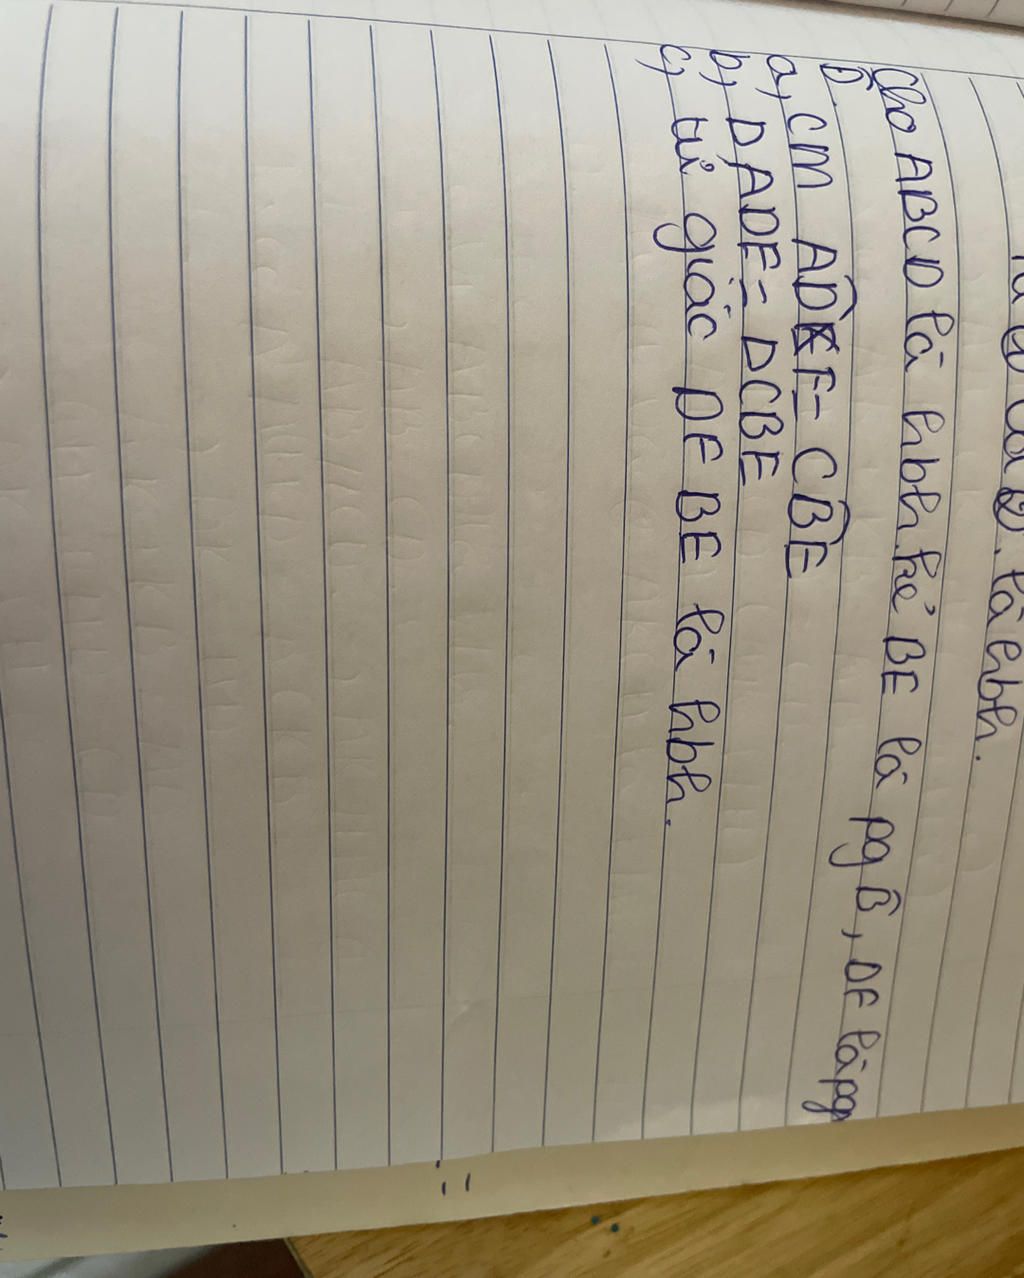 là hbh.
Cho ABCD là hbh kẻ BE là pg B̂, DF là pg
D̂.
a, CM ADF = CBE
b, DADF = DCBE
c, tứ giác DFBE là hbh.